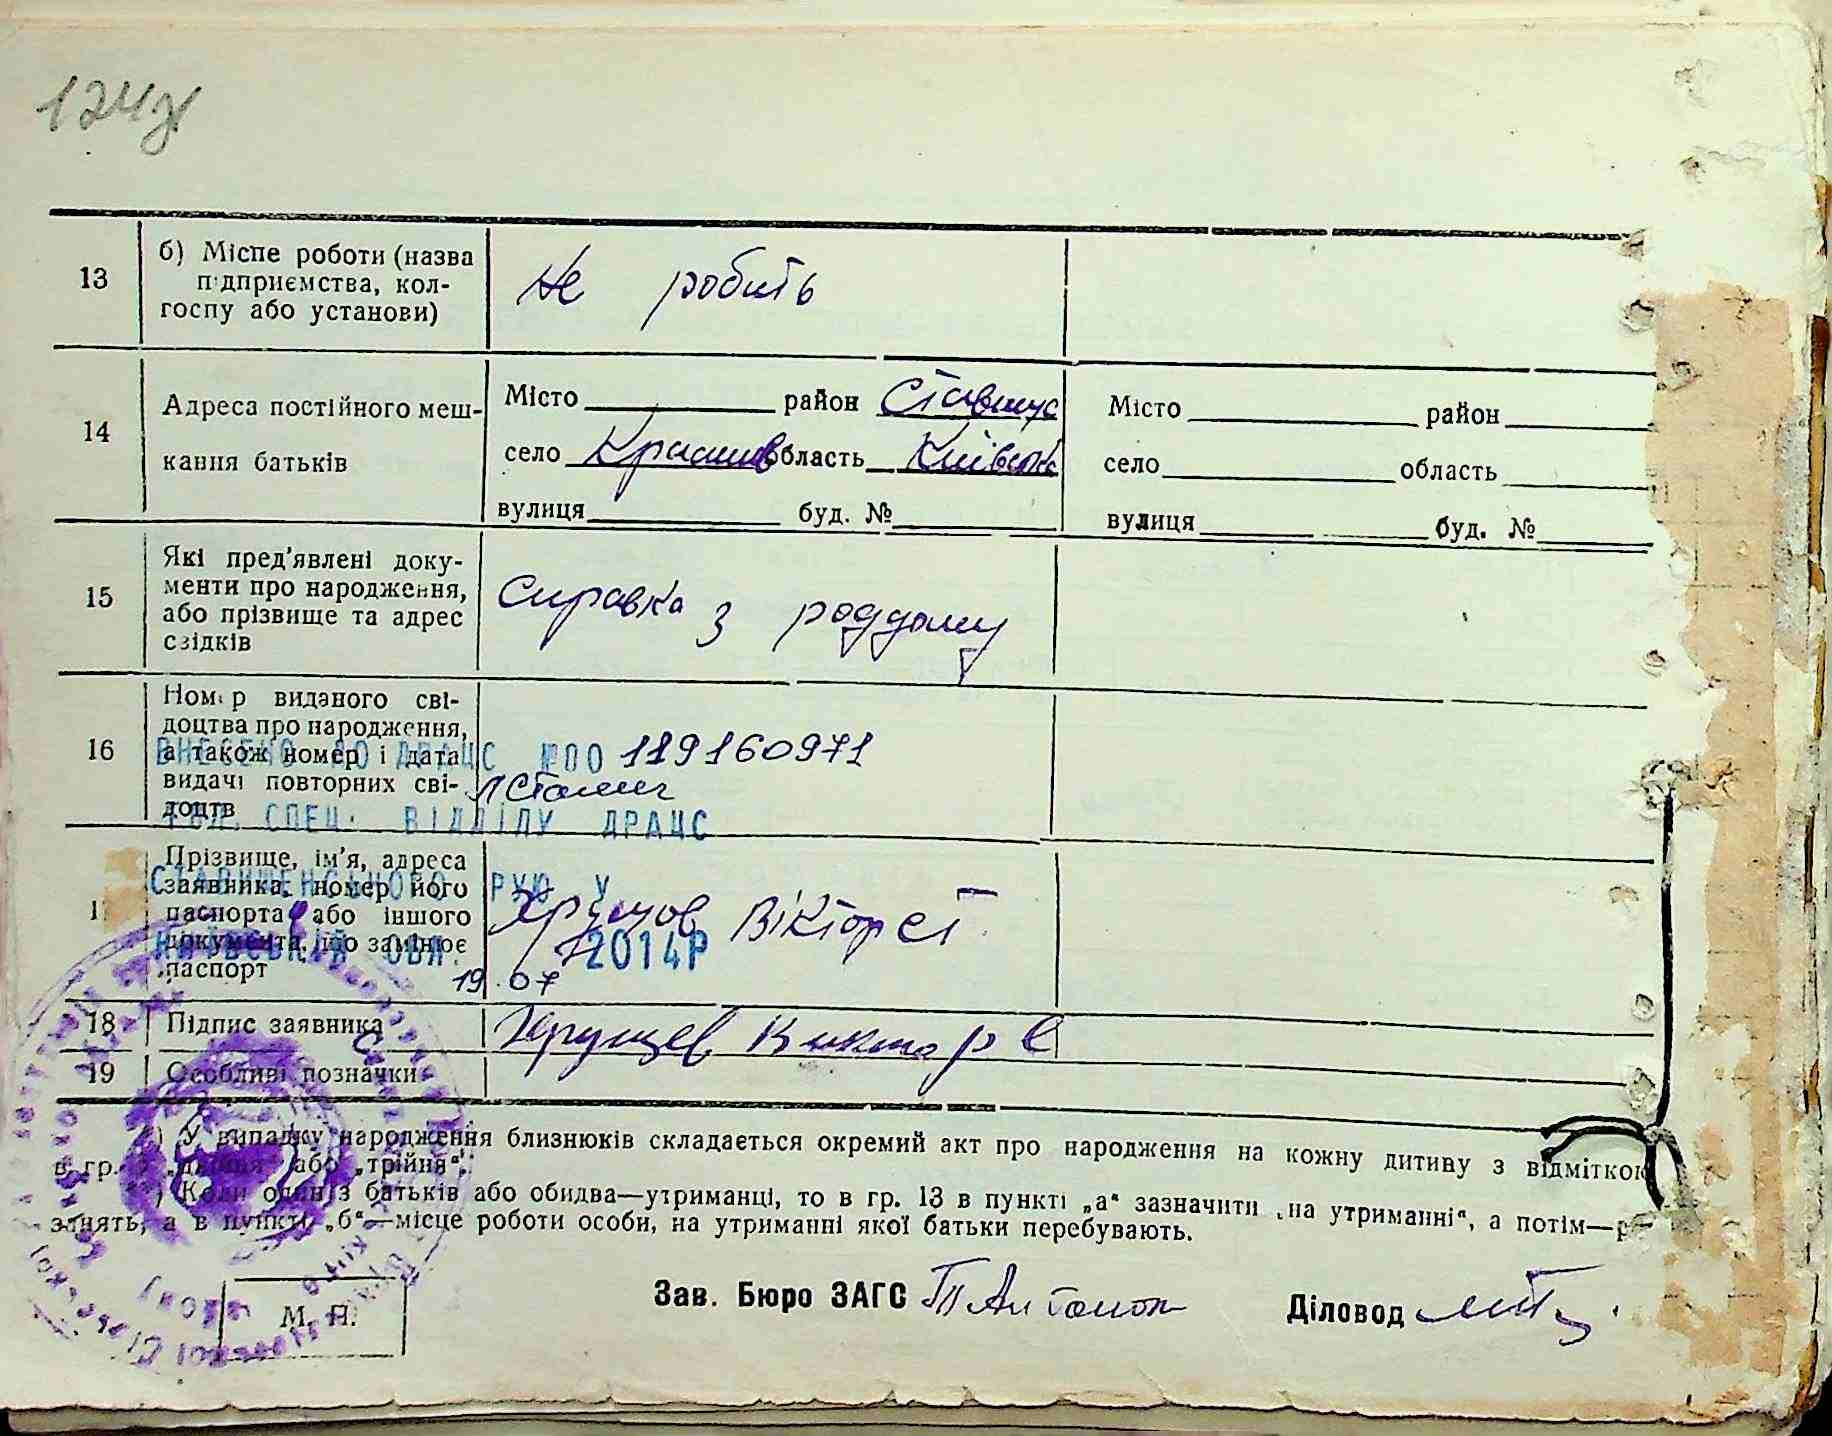 13
б) Місце роботи (назва
підприємства, кол-
госпу або установи)
Не робить
14
Адреса постійного меш-
кання батьків
Місто район Ставищ
село область Київськ
вулиця буд. №
Місто район
село область
вулиця буд. №
15
Які пред'явлені доку-
менти про народження,
або прізвище та адрес
свідків
Справка з роддому
16
Номер виданого сві-
доцтва про народження,
а також номер і дата
видачі повторних сві-
доцтв
ВНЕСЕНО ДО ДРАЦС №ПО 119160971
СПЕЦ. ВІДДІЛУ ДРАЦС
Прізвище, ім'я, адреса
заявника, номер його
паспорта або іншого
документа, що замінює
паспорт
РУЮ У
КИЇВСЬКІЙ ОБЛ.
19.07 2014Р
Хрущов Віктор Єг
18
Підпис заявника
Хрущев Виктор Е
19
Особливі позначки
*) У випадку народження близнюків складається окремий акт про народження на кожну дитину з відміткою
в гр. „двійня" або „трійня".
**) Коли один з батьків або обидва—утриманці, то в гр. 13 в пункті „а" зазначити „на утриманні", а потім—р
занять, а в пункті „б"—місце роботи особи, на утриманні якої батьки перебувають.
Зав. Бюро ЗАГС
Діловод
М. П.